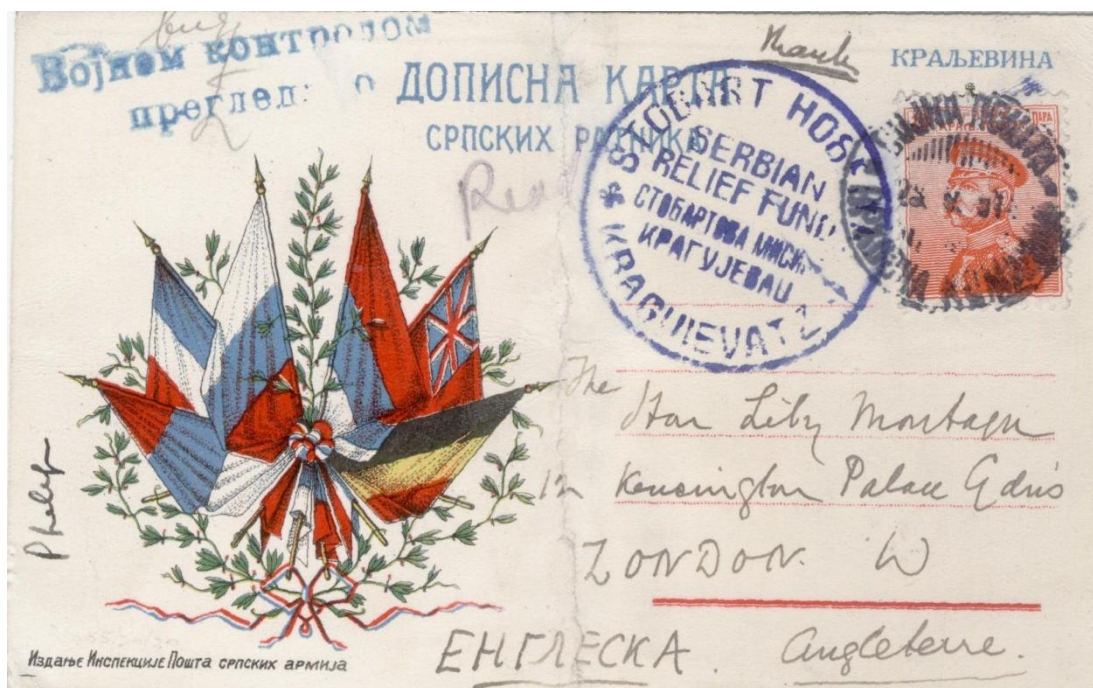 Војном контролом
прегледано
КРАЉЕВИНА
ДОПИСНА КАРТА
СРПСКИХ РАТНИКА
STOBART HOSPITAL
SERBIAN
RELIEF FUND
СТОБАРТОВА МИСИЈА
КРАГУЈЕВАЦ
* KRAGUIEVATZ
The
Hon Lily Montagu
12 Kensington Palace Gdns
LONDON. W
ЕНГЛЕСКА. Angleterre.
Издање Инспекције Пошта српских армија